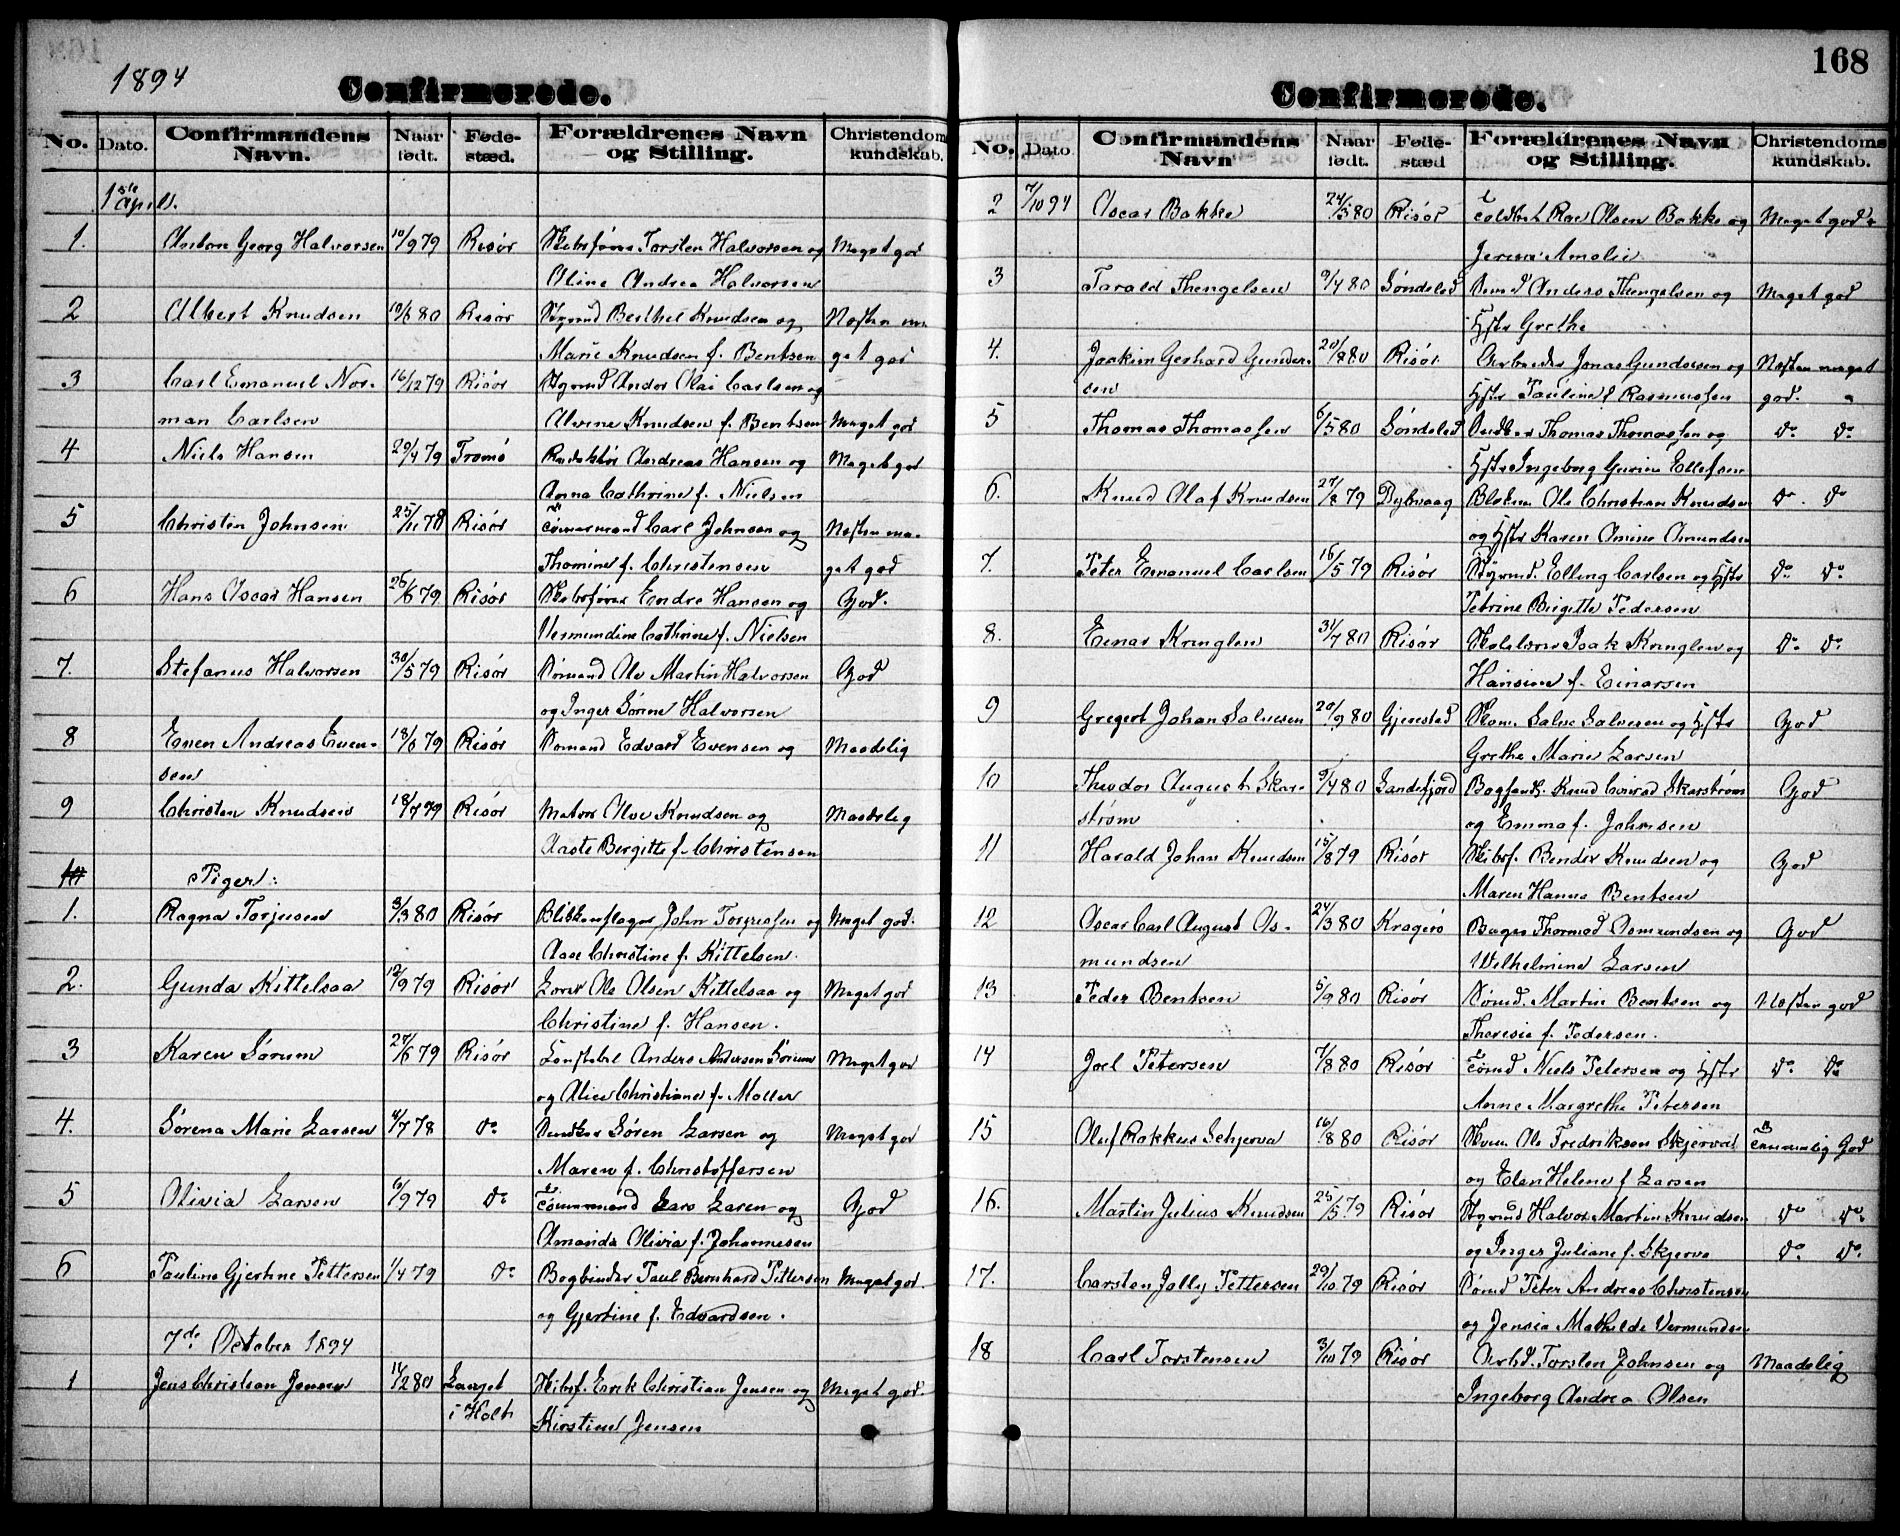 1894
Confirmerede.
No. Dato. Confirmandens Navn. Naar født. Føde-stæd. Forældrenes Navn og Stilling. Christendoms kundskab.
1ste April.
1. Anton Georg Halvorsen 10/9 79 Risør Skibsfører Torsten Halvorsen og Meget god
Oline Andrea Halvorsen
2 Albert Knudsen 80 Risør Styrmd Berthel Knudsen og Næsten me-
Marie Knudsen f. Bentsen get god
3 Carl Emanuel Nor- 16/12 79 Risør Styrmd Andor Olai Carlsen og
man Carlsen Alvine Knudsen f. Bentsen Meget god
4 Niels Hansen 29/4 79 Tromö Redaktör Andreas Hansen og Meget god
Anna Cathrine f. Nielsen
5 Christen Johnsen 25/11 78 Risør Tömmermand Carl Johnsen og Næsten me-
Thomine f. Christensen get god
6 Hans Oscar Hansen 26/6 79 Risør Skibsfører Endre Hansen og God.
Vermundine Cathrine f. Nielsen
7. Stefanus Halvorsen 30/5 79 Risør Sömand Ole Martin Halvorsen God
og Inger Sörine Halvorsen
8 Even Andreas Even- 79 Risør Sömand Edvard Evensen og Maadelig
sen
9 Christen Knudsen 18/7 79 Risør Matros Olve Knudsen og Maadelig
Aaste Bergitte f. Christensen
10
Piger:
1. Ragna Torjusen 3/3 80 Risør Blikkenslager John Torjussen og Meget god.
Aase Christine f. Kittelsen.
2. Gunda Kittelsaa 12/9 79 Risør Ole Olsen Kittelsaa og Meget god
Christine f. Hansen.
3 Karen Sörum 27/6 79 Risør Konstabel Anders Andersen Sörum Meget god
og Alice Christiane f. Møller
4. Sörena Marie Larsen 4/7 78 Do Snedker Sören Larsen og Meget god
Maren f. Christoffersen
5 Olivia Larsen 6/9 79 Do Tömmermand Lars Larsen og God
Amanda Olivia f. Johannesen
6 Pauline Gjertine Pettersen 1/4 79 Do Bogbinder Paul Bernhard Pettersen Meget god.
og Gjertine f. Edvardsen.
7de October 1894
1 Jens Christian Jensen 14/2 80 Langet Skibsf. Enok Christian Jensen og Meget god.
i Holt Kirstine Jensen
168
Confirmerede.
No. Dato Confirmandens Navn Naar født. Føde-stæd Forældrenes Navn og Stilling. Christendoms kundskab.
2 7/10 94 Oscar Bakke 24/5 80 Risør Olsen Bakke og Meget god
Amalie
3 Tarald Thengelsen 9/4 80 Söndeled Anders Thengelsen og Meget god
Hstr Grethe
4. Joakim Gerhard Gunder- 20/8 80 Risør. Arbeider Jonas Gundersen og Næsten meget
sen Hstr Pauline f Rasmussen god.
5 Thomas Thomassen 6/5 80 Söndeled Thomas Thomassen og Do Do
Hstr Ingeborg Gurine Ellefsen
6. Knud Olaf Knudsen 27/8 79 Dybvaag Ole Christian Knudsen Do. Do
og Hstr Karen Amine Amundsen
7. Peter Emanuel Carlsen 16/5 79 Risør Styrmd. Elling Carlsen og Hstr Do Do
Petrine Birgitte Pedersen
8. Einar Kringlen 31/7 80 Risør Skolelærer Isak Kringlen og Do Do
Hansine f. Einarsen
9 Gregert Johan Salvesen 20/9 80 Gjerestad Skom. Salve Salvesen og Hstr God
Grethe Marie Larsen
10 Theodor August Skar- 9/4 80 Sandefjord Bogforh. Knud Conrad Skarström God
ström og Emma f. Johnsen
11 Harald Johan Knudsen 15/8 79 Risør Skibsf. Bendix Knudsen og God
Maren Hanna Bentsen
12 Oscar Carl August As- 24/3 80 Kragerö Bager Thormod Asmundsen og God
mundsen Wilhelmine Larsen
13 Peder Bentsen 5/9 80 Risør Sömd. Martin Bentsen og Næsten god
Theresie f. Pedersen.
14 Joel Petersen 7/8 80 Risør Tömd Niels Petersen og Hstr Do Do
Anne Margrethe Petersen
15 Oluf Rakkus Schjerva 16/8 80 Risør Skom. Ole Fredriksen Skjervet Temmelig God
og Elen Helene f Larsen
16. Martin Julius Knudsen 25/5 79 Risør Styrmd Halvor Martin Knudsen Do Do
og Inger Juliane f. Skjerva Do Do
17. Carsten Jolly Pettersen 29/10 79 Risør Sömd Peter Andreas Christensen
og Jensia Mathilde Vermundsen
18 Carl Torstensen 3/10 79 Risør Arbd. Torsten Johnsen og Maadelig
Ingeborg Andrea Olsen